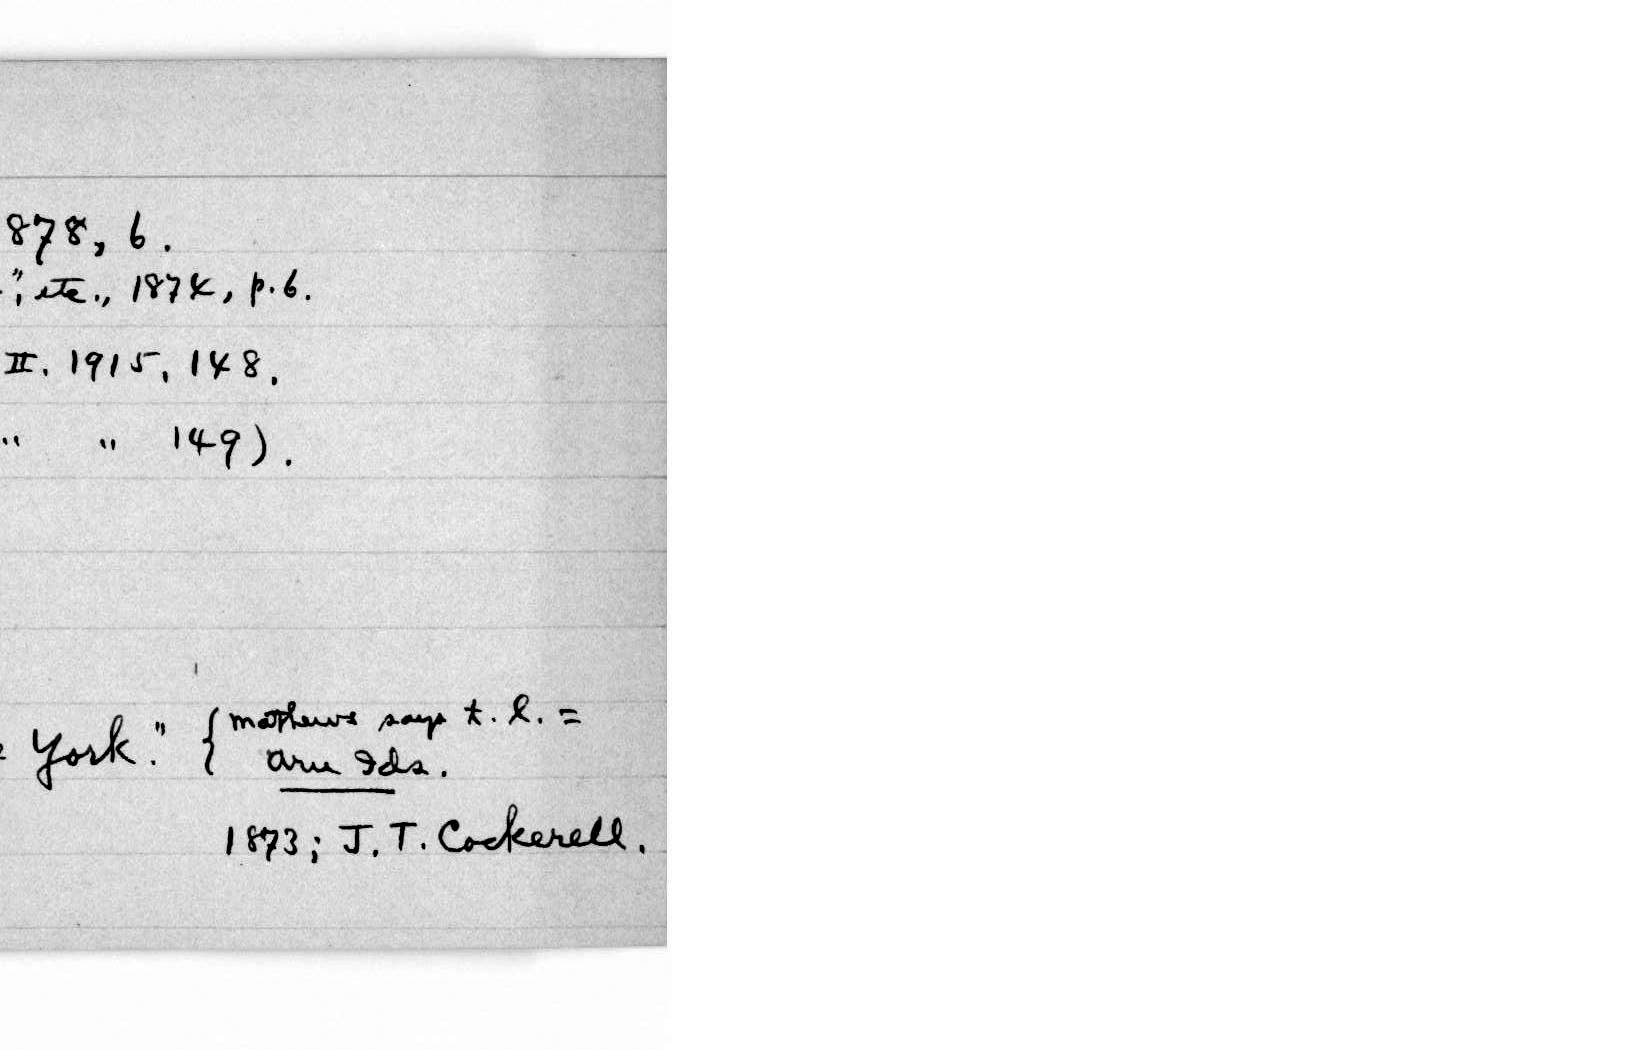 878, 6.
", etc., 1874, p.6.
II. 1915, 148.
" " 149).
York." { Mathews says t. l. =
Aru Ids.
1873; J. T. Cockerell.